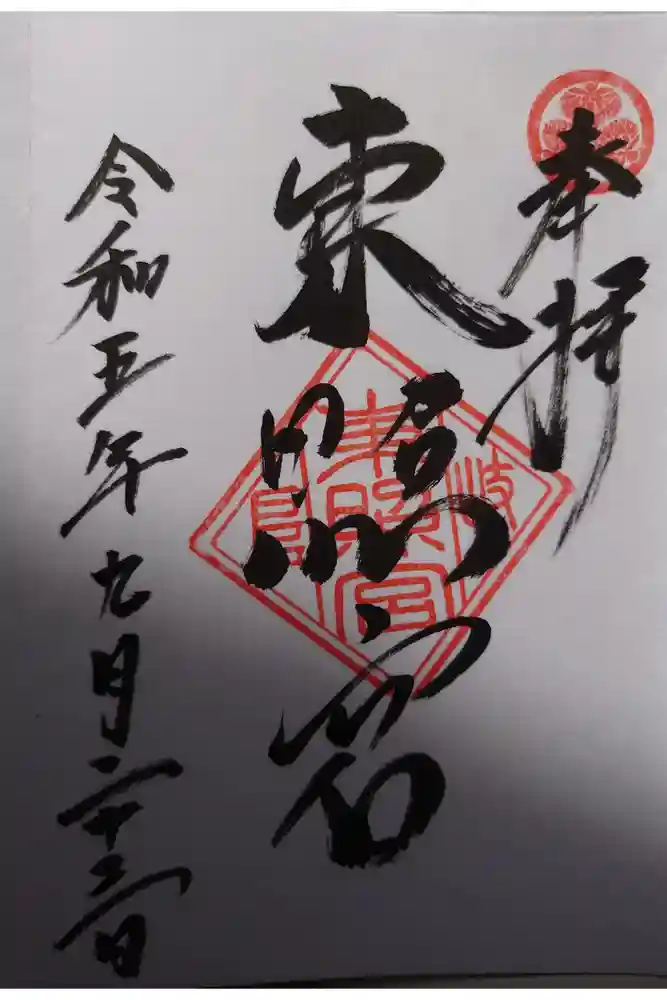 奉拝
東照宮
岐
東照宮
阜
令和五年九月二十三日